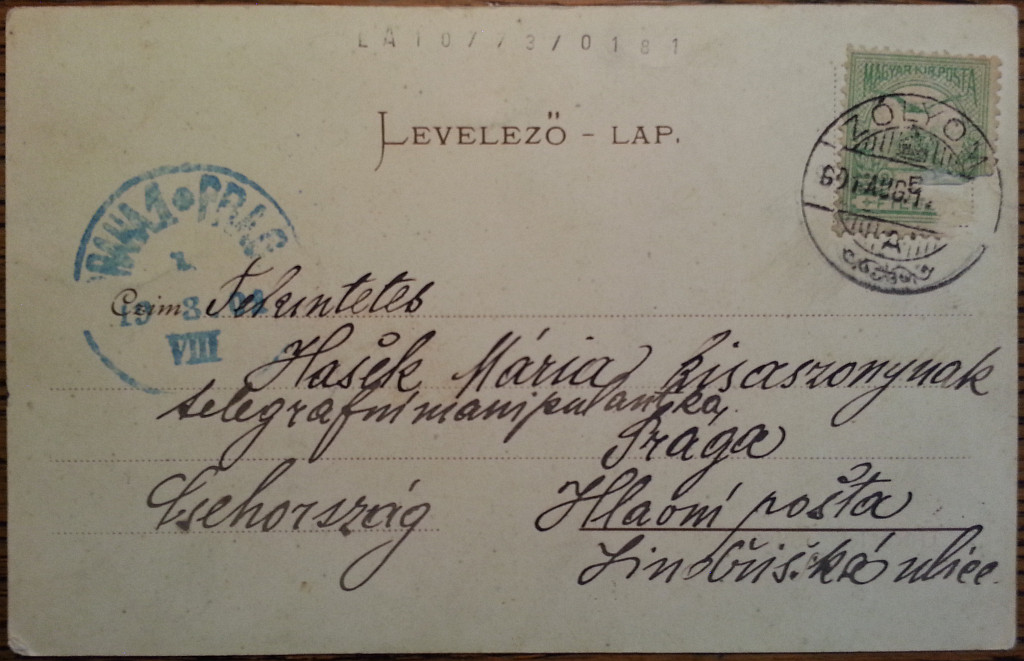 LA10773/0181
LEVELEZŐ - LAP.
MAGYAR KIR. POSTA
ZÓLYOM
A
PRAHA 1 PRAG
VIII
Czim Tekintetes
Hašek Mária kisaszonynak
telegrafní manipulantka,
Prága
Csehország
Hlavní pošta
Jindřišská ulice.